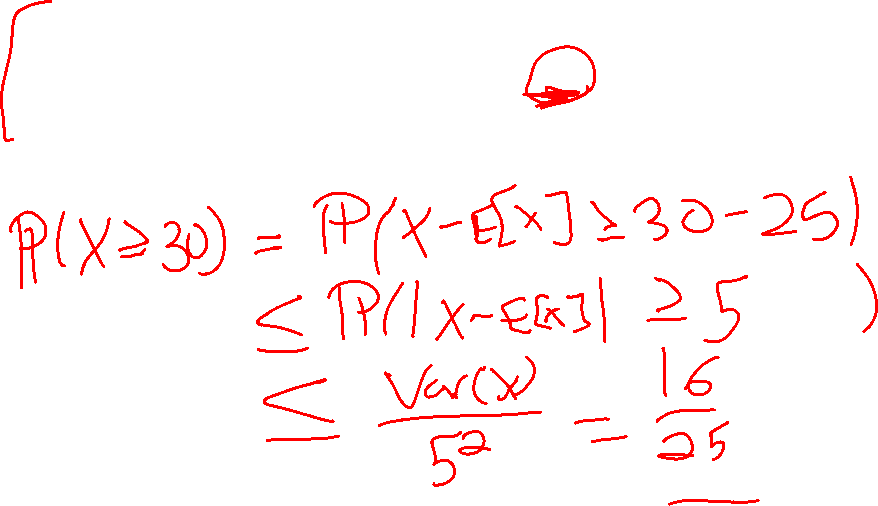 ℙ(X≥30) = ℙ(X-E[X] ≥ 30-25)
≤ ℙ(|X-E[X]| ≥ 5 )
≤ Var(X)/5² = 16/25